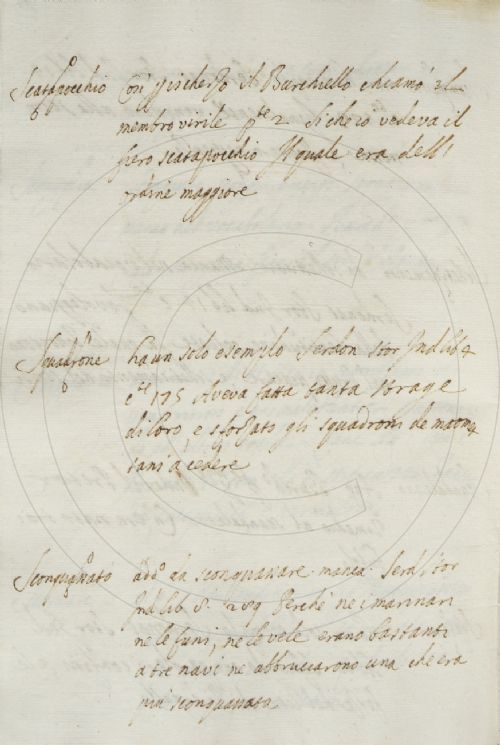 Scatapocchio Così p ischerzo il Burchiello chiamò il
membro virile p.te 2. Sicheio vedeva il
fiero scatapocchio Il quale era dell'
ordine maggiore
Squadrone ha un solo esempio Serdon. stor Ind lib 4
c.te 175 Aveva fatta tanta strage
di loro, e sforzato gli squadroni de maom
tani à cedere
Sconquassato add. da sconquassare manca Serd. stor
Ind lib 8. 289 Perchè ne i marinari
ne le funi, ne le vele erano bastanti
a tre navi ne abbruciarono una che era
più sconquassata